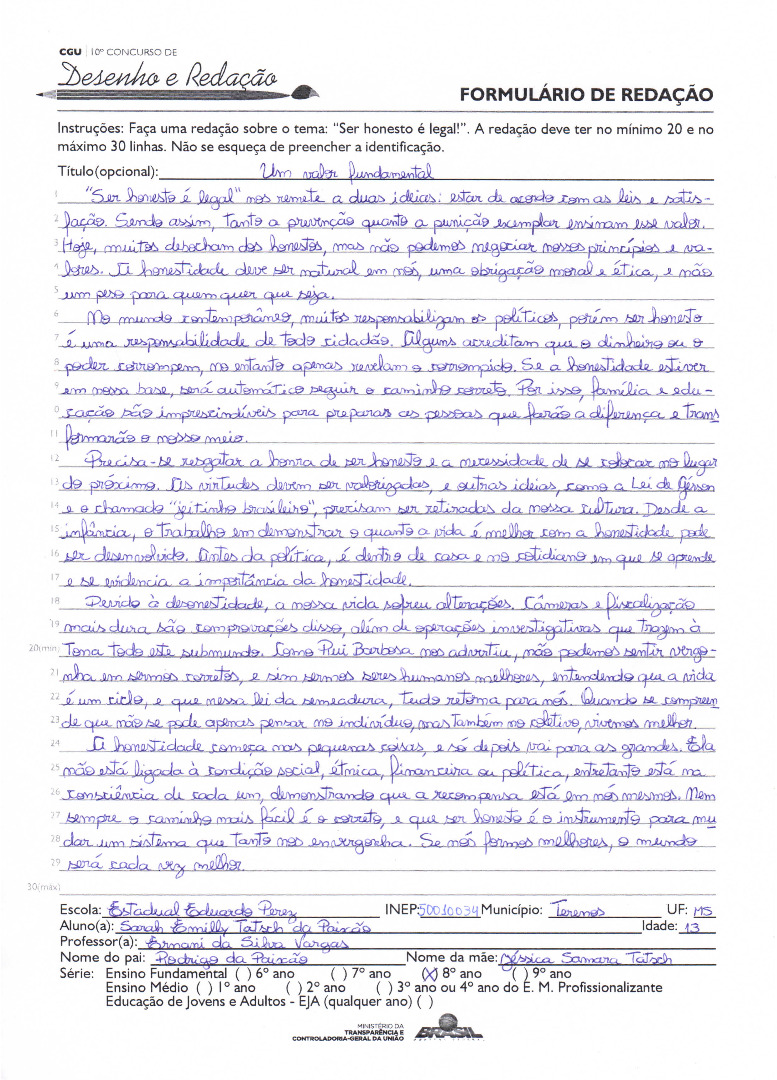 CGU | 10º CONCURSO DE
Desenho e Redação
FORMULÁRIO DE REDAÇÃO
Instruções: Faça uma redação sobre o tema: "Ser honesto é legal!". A redação deve ter no mínimo 20 e no
máximo 30 linhas. Não se esqueça de preencher a identificação.
Título(opcional): Um valor fundamental
1 "Ser honesto é legal" nos remete a duas ideias: estar de acordo com as leis e satis-
2 fação. Sendo assim, tanto a prevenção quanto a punição exemplar ensinam esse valor.
3 Hoje, muitos debocham dos honestos, mas não podemos negociar nossos princípios e va-
4 lores. A honestidade deve ser natural em nós, uma obrigação moral e ética, e não
5 um peso para quem quer que seja.
6 No mundo contemporâneo, muitos responsabilizam os políticos, porém ser honesto
7 é uma responsabilidade de todo cidadão. Alguns acreditam que o dinheiro ou o
8 poder corrompem, no entanto apenas revelam o corrompido. Se a honestidade estiver
9 em nossa base, será automático seguir o caminho correto. Por isso, família e edu-
0 cação são imprescindíveis para preparar as pessoas que farão a diferença e trans
11 formarão o nosso meio.
12 Precisa-se resgatar a honra de ser honesto e a necessidade de se colocar no lugar
13 do próximo. As virtudes devem ser valorizadas, e outras ideias, como a Lei de Gérson
14 e o chamado "jeitinho brasileiro", precisam ser retiradas da nossa cultura. Desde a
15 infância, o trabalho em demonstrar o quanto a vida é melhor com a honestidade pode
16 ser desenvolvido. Antes da política, é dentro de casa e no cotidiano em que se aprende
17 e se evidencia a importância da honestidade.
18 Devido à desonestidade, a nossa vida sofreu alterações. Câmeras e fiscalização
19 mais dura são comprovações disso, além de operações investigativas que trazem à
20(min) tona todo este submundo. Como Rui Barbosa nos advertiu, não podemos sentir vergo-
21 nha em sermos corretos, e sim sermos seres humanos melhores, entendendo que a vida
22 é um ciclo, e que nessa lei da semeadura, tudo retorna para nós. Quando se compreen
23 de que não se pode apenas pensar no indivíduo, mas também no coletivo, vivemos melhor.
24 A honestidade começa nas pequenas coisas, e só depois vai para as grandes. Ela
25 não está ligada à condição social, étnica, financeira ou política, entretanto está na
26 consciência de cada um, demonstrando que a recompensa está em nós mesmos. Nem
27 sempre o caminho mais fácil é o correto, e que ser honesto é o instrumento para mu
28 dar um sistema que tanto nos envergonha. Se nós formos melhores, o mundo
29 será cada vez melhor.
30(máx)
Escola: Estadual Eduardo Perez INEP: 50010034 Município: Terenos UF: MS
Aluno(a): Sarah Emilly Tatsch da Paixão Idade: 13
Professor(a): Ernani da Silva Vargas
Nome do pai: Rodrigo da Paixão Nome da mãe: Jéssica Samara Tatsch
Série: Ensino Fundamental ( ) 6º ano ( ) 7º ano (X) 8º ano ( ) 9º ano
Ensino Médio ( ) 1º ano ( ) 2º ano ( ) 3º ano ou 4º ano do E. M. Profissionalizante
Educação de Jovens e Adultos - EJA (qualquer ano) ( )
MINISTÉRIO DA
TRANSPARÊNCIA E
CONTROLADORIA-GERAL DA UNIÃO
BRASIL